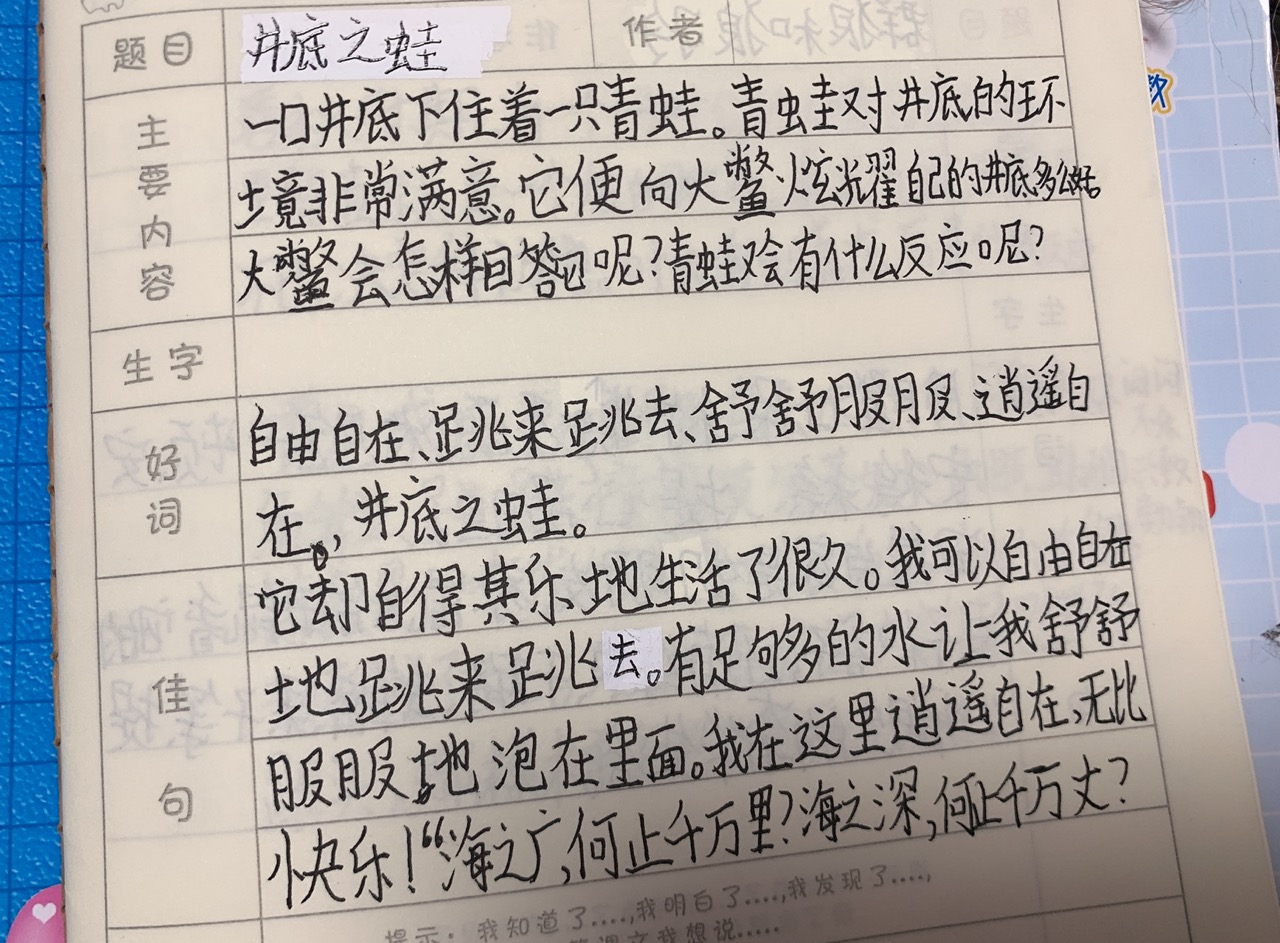 题目 井底之蛙 作者
主要内容
一口井底下住着一只青蛙。青蛙对井底的环
境非常满意。它便向大鳖炫耀自己的井底多么好。
大鳖会怎样回答它呢？青蛙又会有什么反应呢？
生字
好词
自由自在、跳来跳去、舒舒服服、逍遥自
在。，井底之蛙。
佳句
它却自得其乐地生活了很久。我可以自由自在
地跳来跳去。有足够多的水让我舒舒
服服地泡在里面。我在这里逍遥自在，无比
快乐！“海之广，何止千万里？海之深，何止千万丈？
提示：我知道了....，我明白了....，我发现了....，
我想说.....